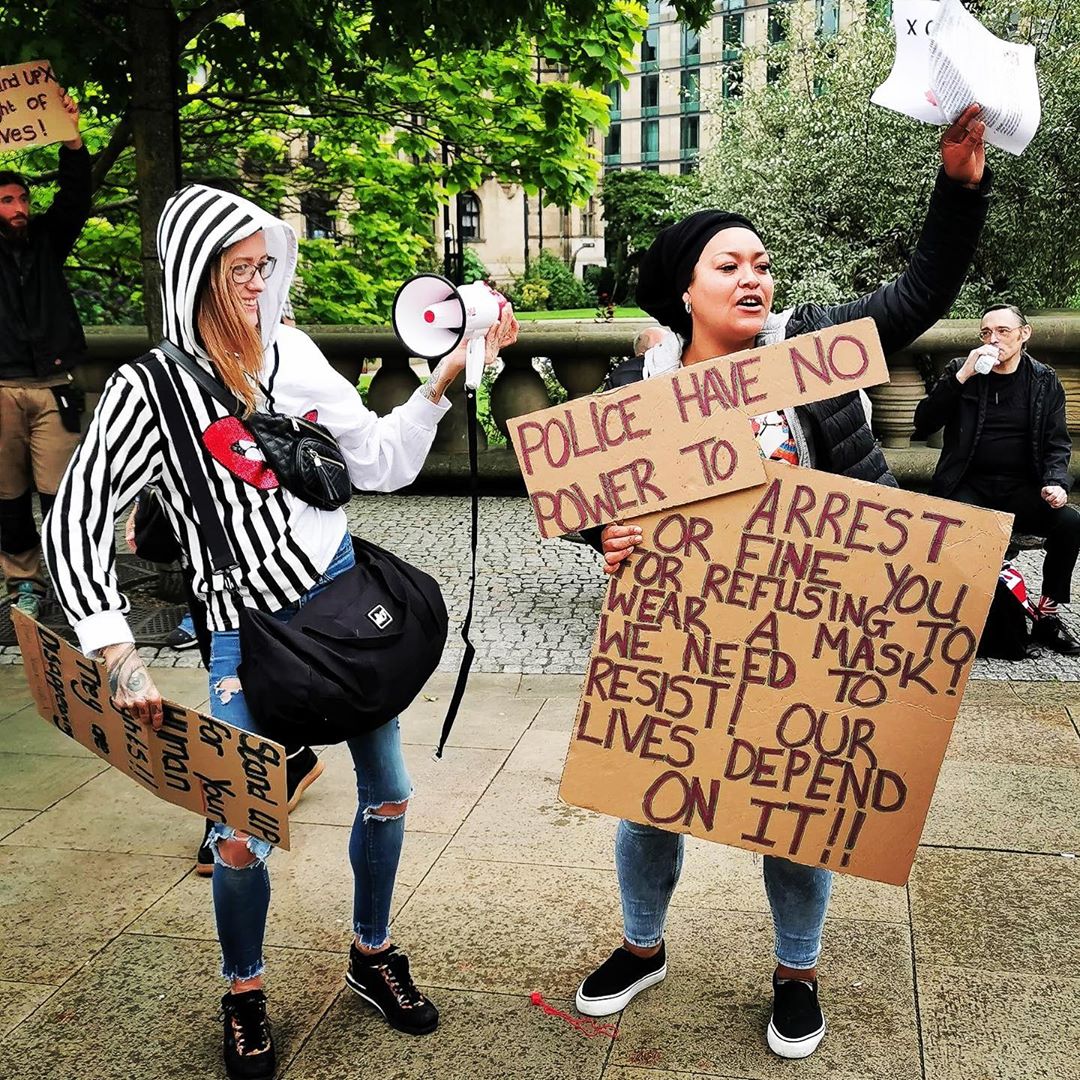 nd UPX
ht of
ves!
X C
POLICE HAVE NO
POWER TO
ARREST
OR FINE YOU
FOR REFUSING TO
WEAR A MASK!
WE NEED TO
RESIST! OUR
LIVES DEPEND
ON IT!!
Stand UP
For Your
Human
ghts!!
They are